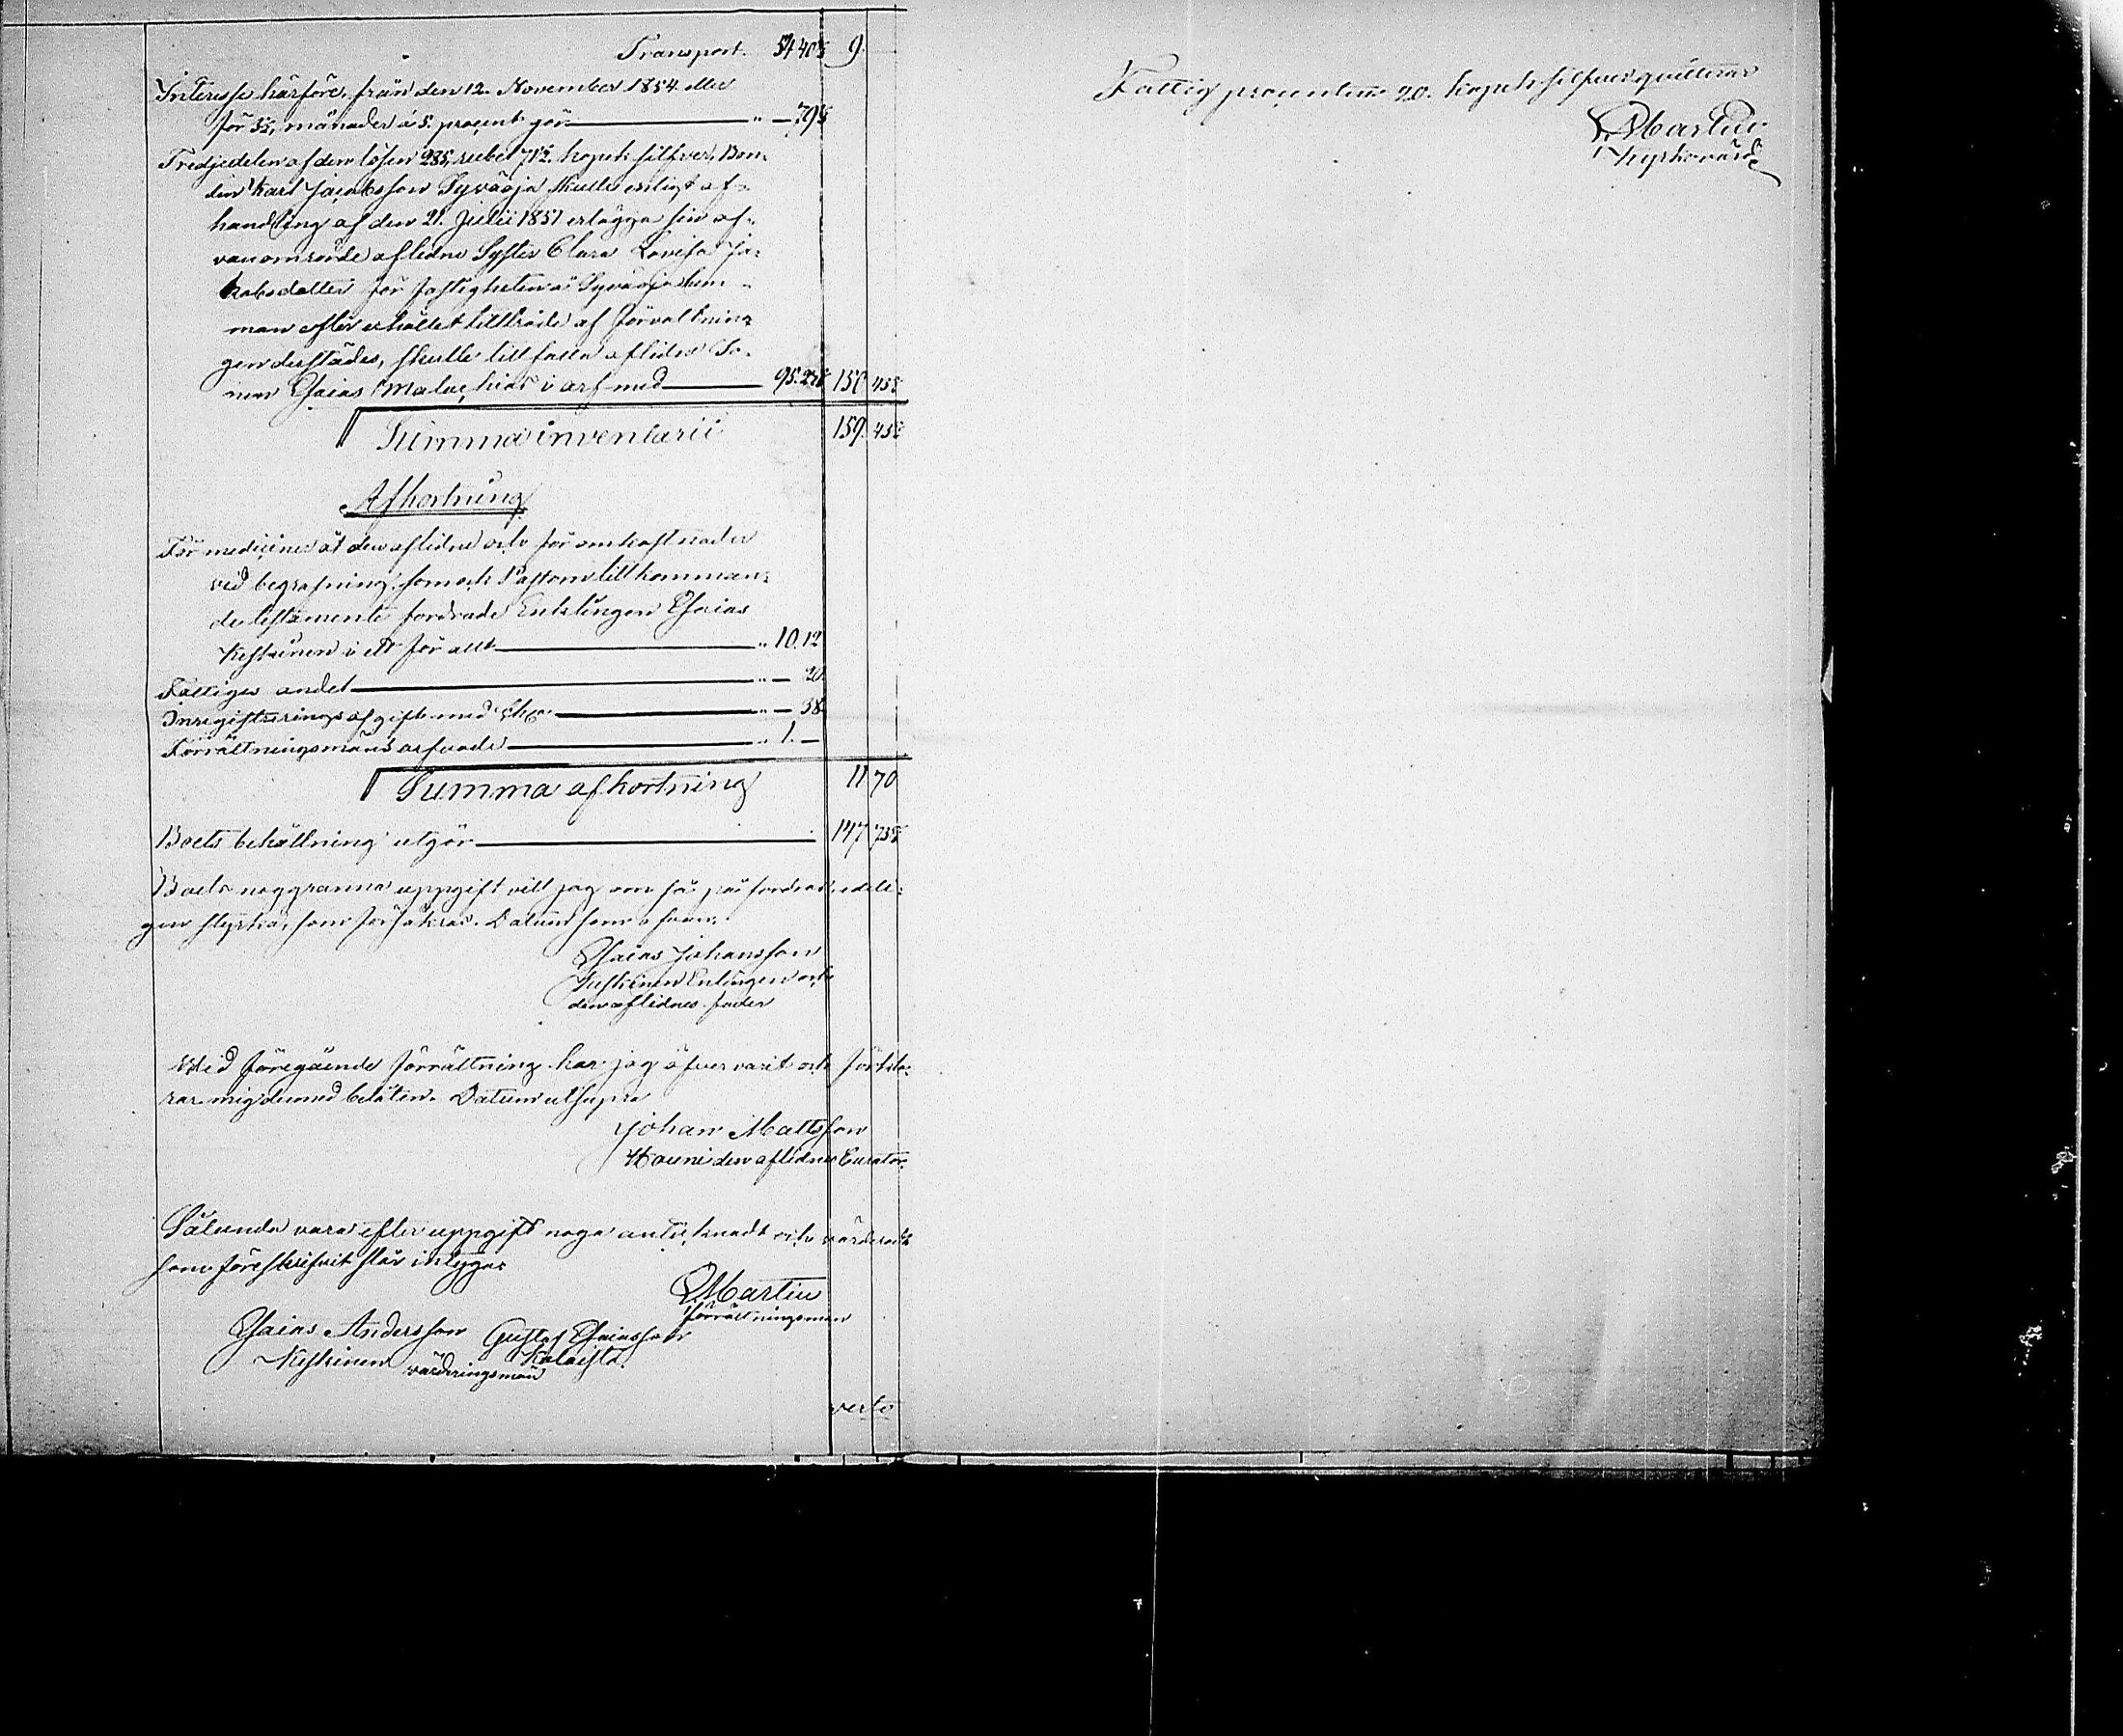 Transport. 54 40½ 9
Interesse härföre från den 12. November 1854 eller
för 3½ månader à 5. procent gör „ — 79½
Tredjedelen af den lösen 285, rubel 71½ kopek silfver, Bon-
den Karl Jacobsson Syväoja skulle enligt af-
handling af den 21. Julii 1851 erlägga sin of-
vanomrörde aflidne Syster Clara Lovisa Ja-
kobsdotter för fastigheten å Syväoja hem-
man efter erhållet tillträde af förvaltnin-
gen derstädes, skulle tillfalla aflidne So-
nen Esaias Malachias i arf med 95. 150 45½
Summa inventarii 159. 45½
Afkortning
För mediciner åt den aflidne och för omkostnader
vid begrafning som och Pastorn tillkomman-
de testamente fordrade Enklingen Esaias
Keskinen i ett för allt „ 10. 12
Fattiges andel „ — 20.
Inregistrerings afgift med „ — 38
Förrättningsmans arfvode „ 1. —
Summa afkortning 11 70
Boets behållning utgör 147 75½
Boets noggranna uppgift vill jag om så påfordras edeli-
gen styrka, som försäkras. Datum som ofvan.
Esaias Johansson
Keskinen Enklingen och
den aflidnes fader
Wid föregående förrättning har jag öfvervarit och förkla-
rar mig dermed belåten. Datum utsupra
Johan Mattsson
Hauni den aflidnes Curator.
Sålunda vara efter uppgift noga antecknadt och värderadt
som föreskrifvit står intygas
Martin
förrättningsman
Esaias Andersson Gustaf Esaiasson
Keskinen Kalaista
värderingsmän
verto
Fattig procenten 20. kopek silfver qvitteras
Martin
Kyrkovärd